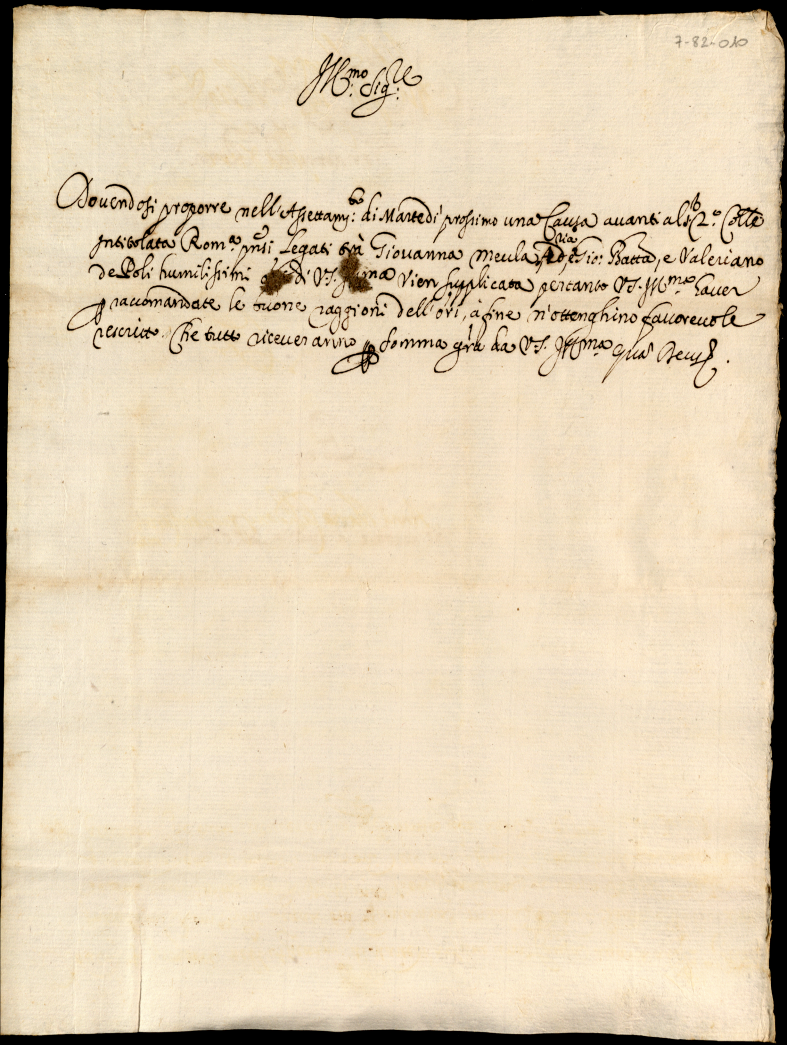 7-82-010
Ill:mo Sig:re
Dovendosi proporre nell'Assettam:to di Martedi prossimo una Causa avanti al Coll:e
Intitolata Rom:a Legati trà Giovanna meula e Gio: Batta, e Valeriano
de Poli humilissimi di V.S. Ill:ma Vien supplicata pertanto V.S. Ill:ma haver
raccomandate le buone raggioni dell'Ori, à fine n'ottenghino favorevole
rescritto. Che tutto riceveranno somma gra da V.S. Ill:ma